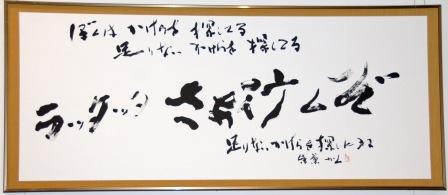 ぼくは かけらを 探してる
足りない かけらを 探してる
ラッタッタ さあ行くぞ
足りない かけらを 探しに